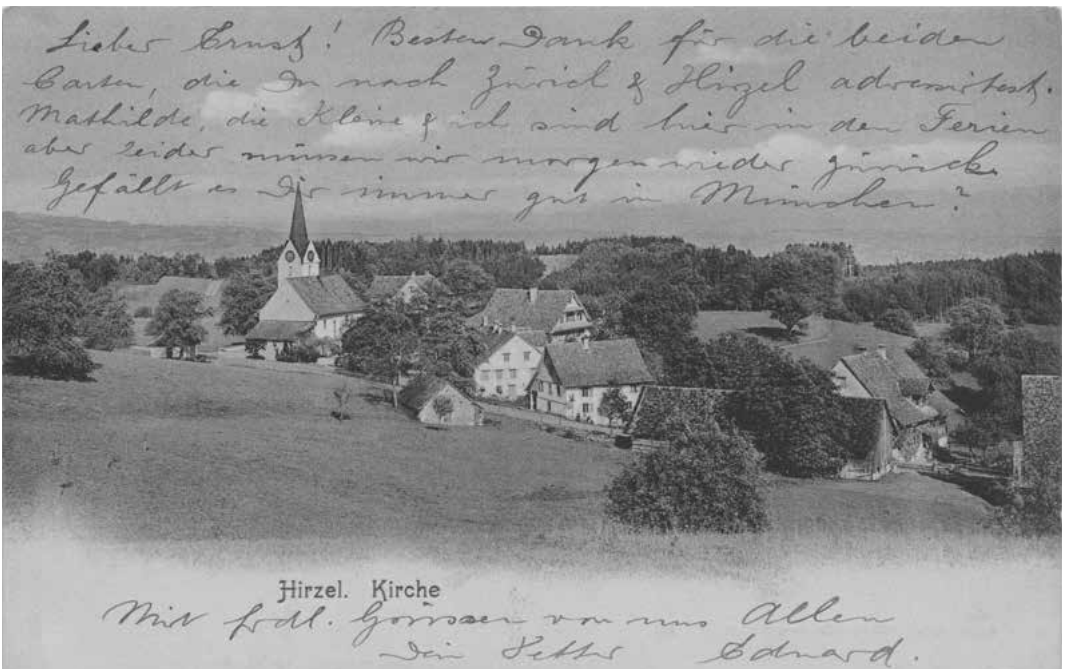 Lieber Ernst! Besten Dank für die beiden
Carten, die Du nach Zürich & Hirzel adressirtest.
Mathilde, die Kleine & ich sind hier in den Ferien
aber leider müssen wir morgen wieder zurück.
Gefällt es Dir immer gut in München?
Hirzel. Kirche
Mit frdl. Grüssen von uns Allen
Dein Vetter Eduard.